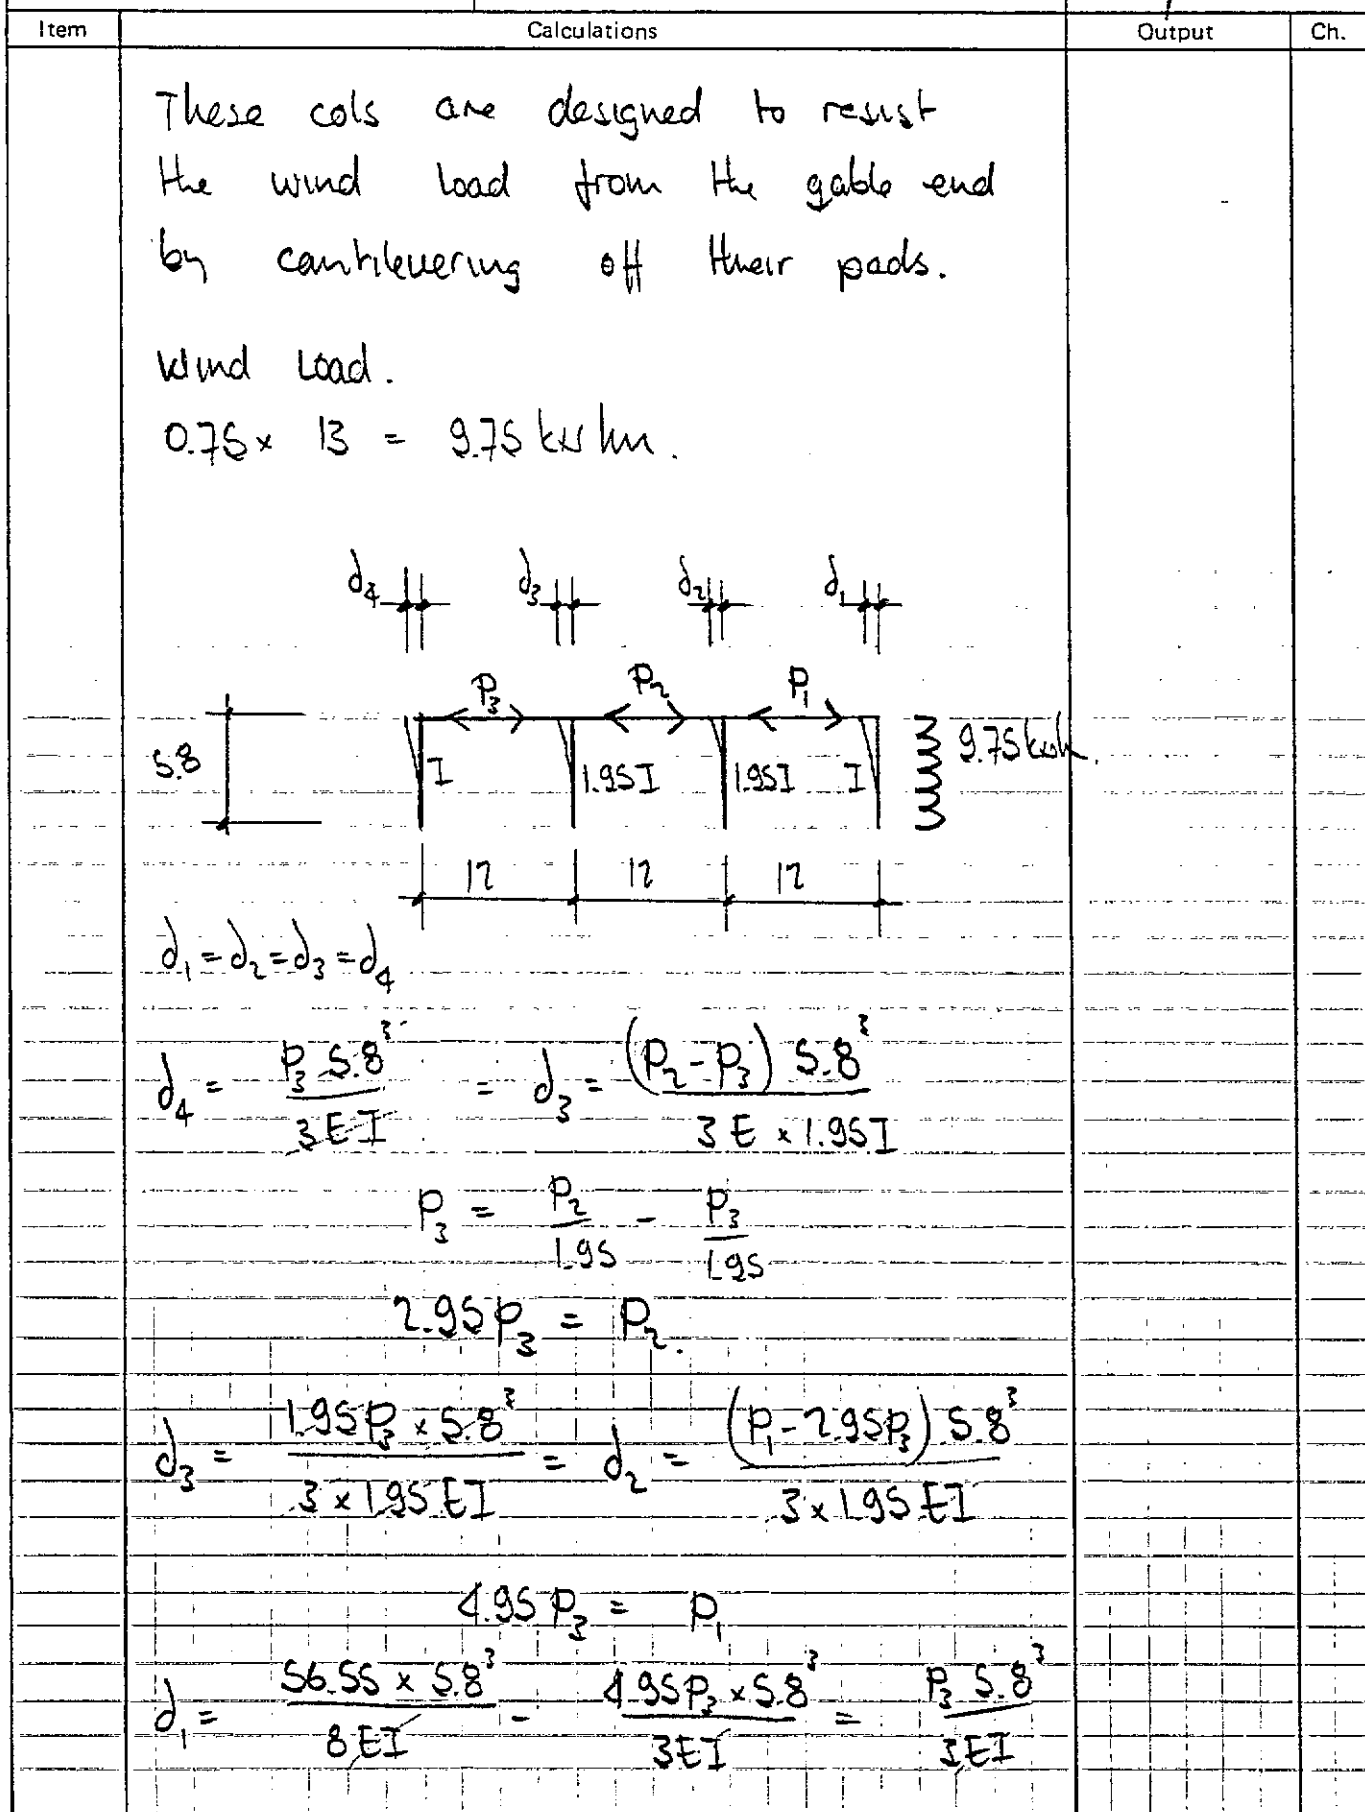 Item Calculations Output Ch.
These cols are designed to resist
the wind load from the gable end
by cantilevering off their pads.
Wind Load.
0.75 × 13 = 9.75 kN/m.
d₄ d₃ d₂ d₁
P₃ P₂ P₁
5.8 I 1.95I 1.95I I 9.75 kN/m.
12 12 12
d₁ = d₂ = d₃ = d₄
d₄ = P₃ 5.8³ / 3EI = d₃ = (P₂ - P₃) 5.8³ / 3E × 1.95I
P₃ = P₂ / 1.95 - P₃ / 1.95
2.95P₃ = P₂.
d₃ = 1.95P₃ × 5.8³ / 3 × 1.95 EI = d₂ = (P₁ - 2.95P₃) 5.8³ / 3 × 1.95 EI
4.95 P₃ = P₁
d₁ = 56.55 × 5.8³ / 8EI - 4.95P₃ × 5.8³ / 3EI = P₃ 5.8³ / 3EI